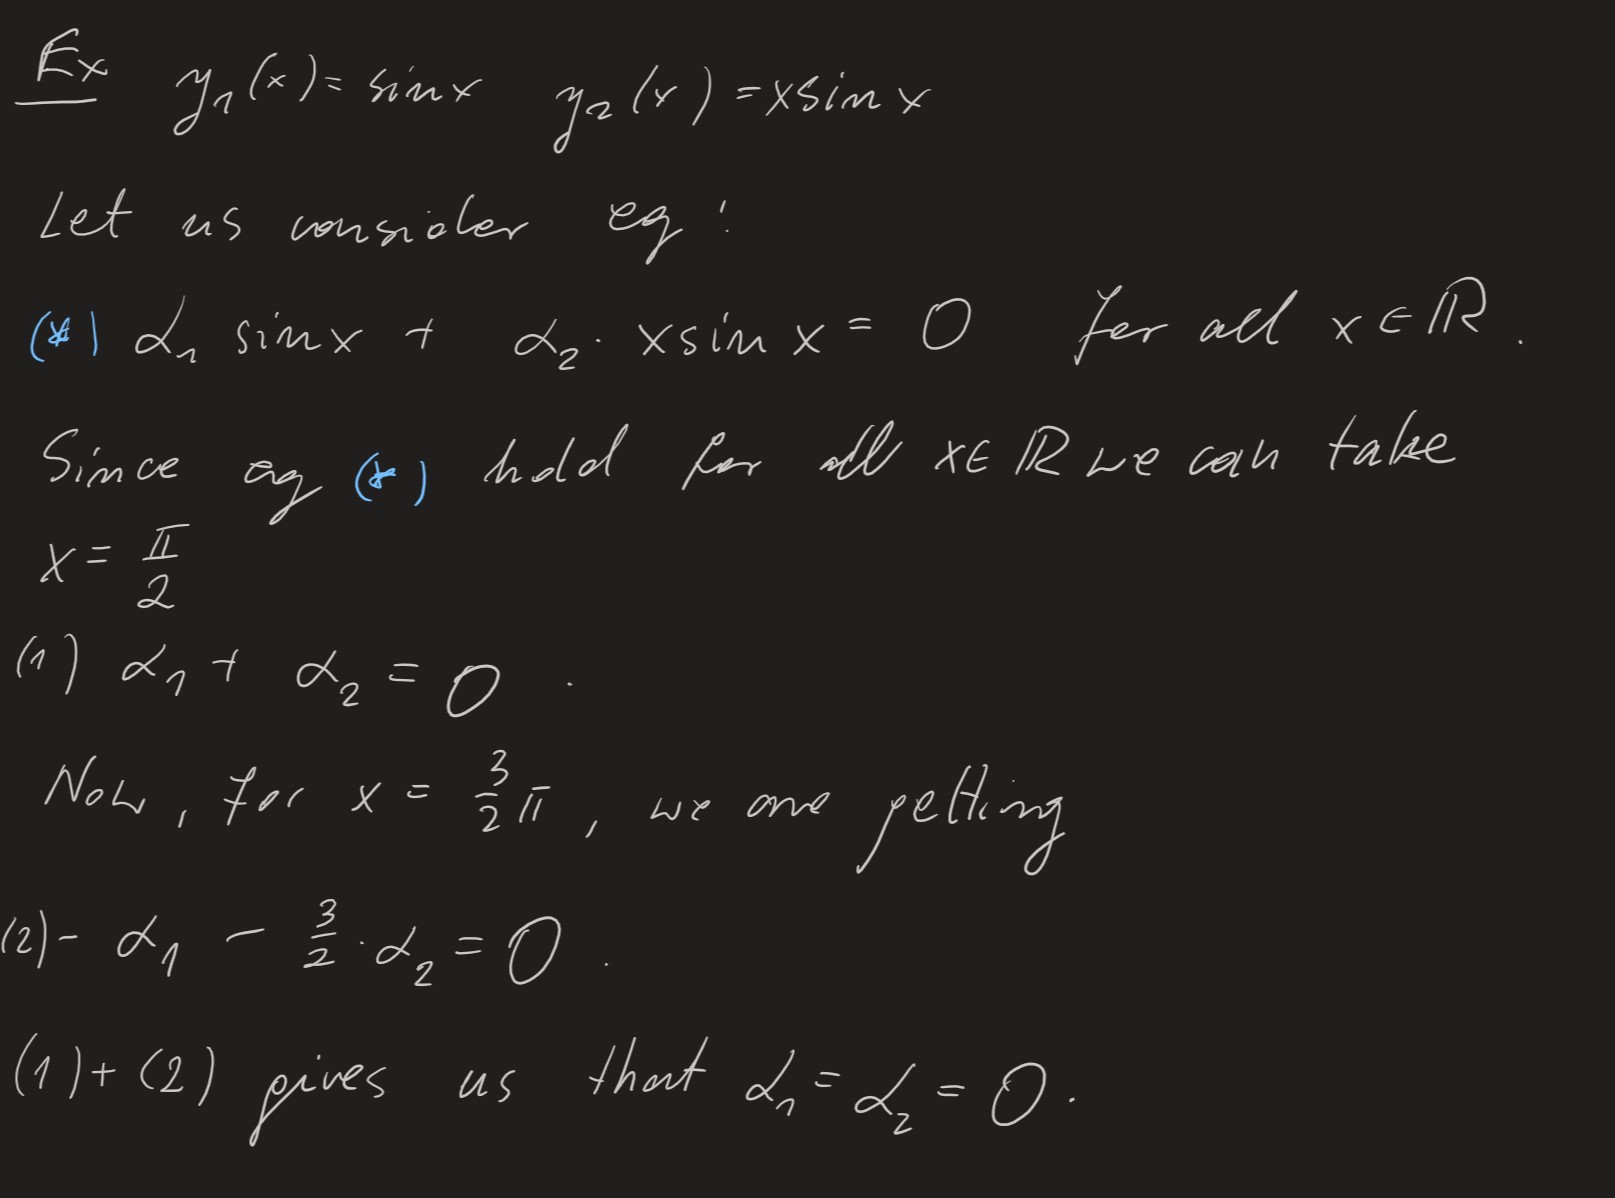 Ex y₁(x) = sin x y₂(x) = x sin x
Let us consider eq:
(*) α₁ sin x + α₂ · x sin x = 0 for all x ∈ ℝ.
Since eq (*) hold for all x ∈ ℝ we can take
x = π/2
(1) α₁ + α₂ = 0.
Now, for x = 3/2 π, we are getting
(2) - α₁ - 3/2 · α₂ = 0.
(1) + (2) gives us that α₁ = α₂ = 0.